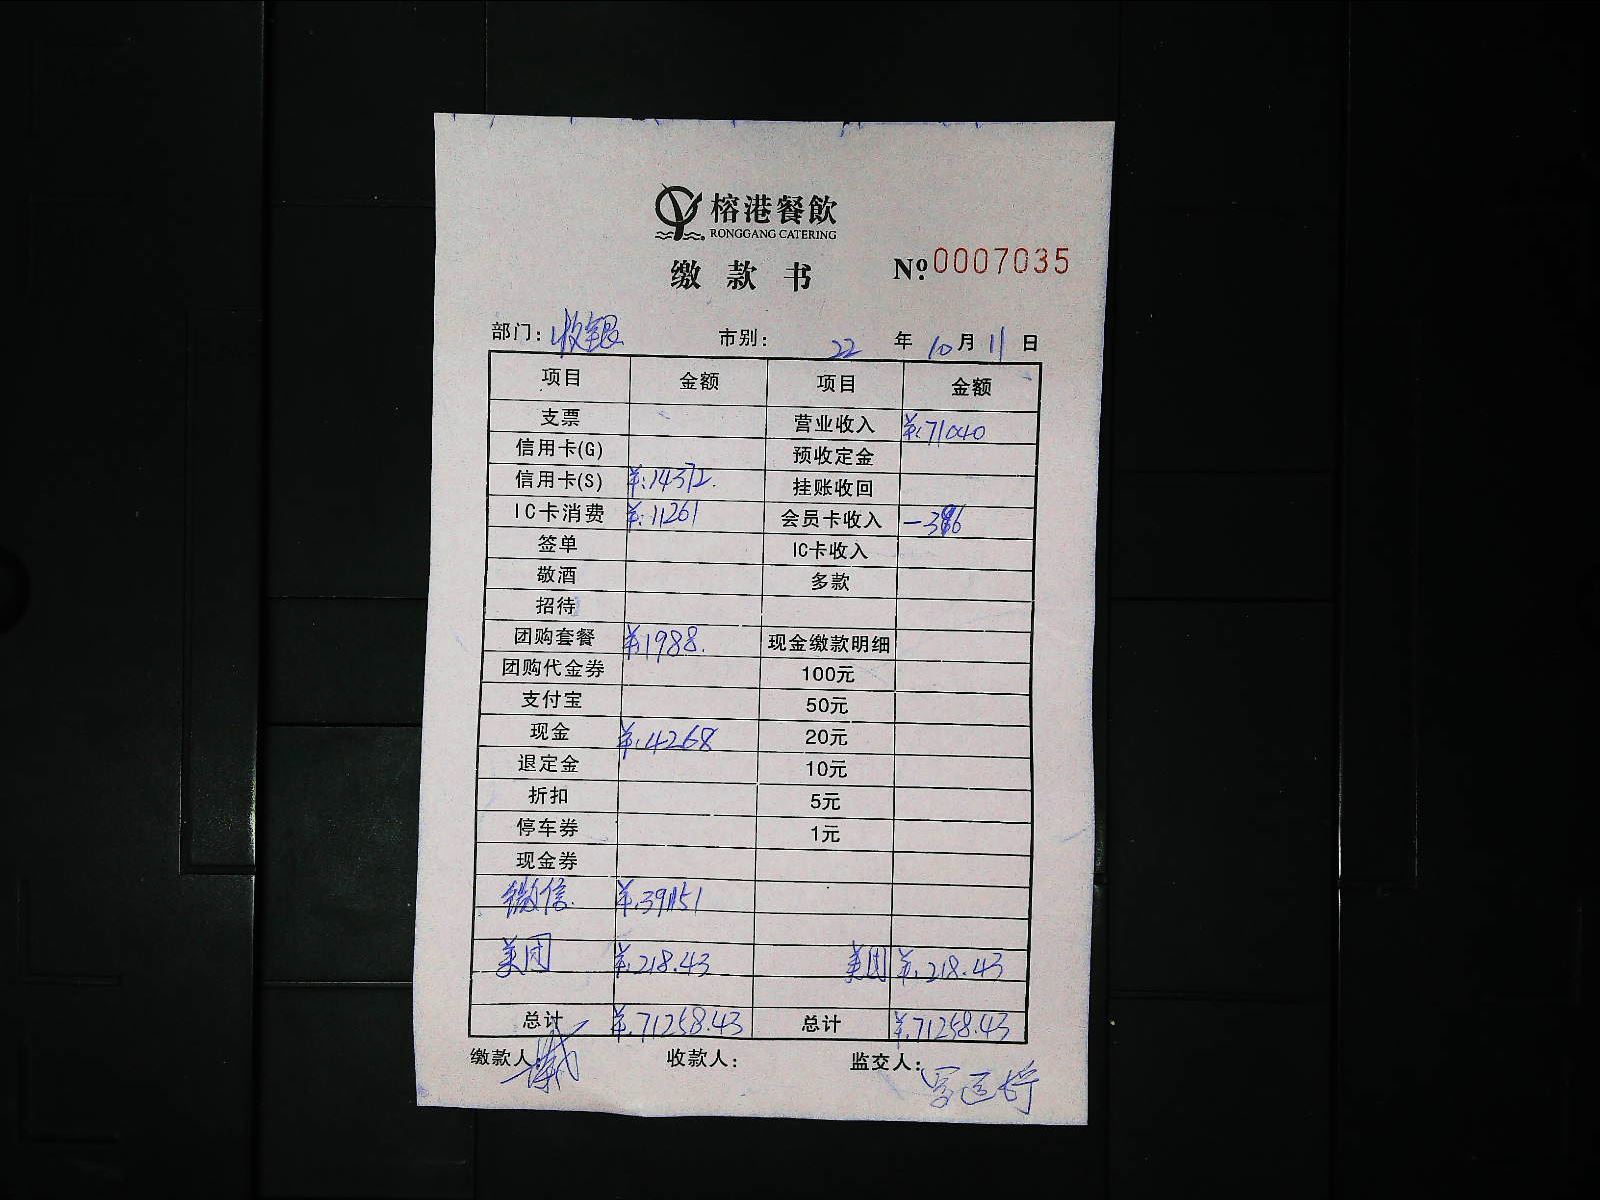 榕港餐飲
RONGGANG CATERING
缴款书
№ 0007035
部门: 收银 市别: 22 年 10 月 11 日
项目 金额 项目 金额
支票 营业收入 ¥:71040
信用卡(G) 预收定金
信用卡(S) ¥:14372. 挂账收回
IC卡消费 ¥:11261 会员卡收入
签单 IC卡收入
敬酒 多款
招待
团购套餐 ¥.1988. 现金缴款明细
团购代金券 100元
支付宝 50元
现金 ¥.4268 20元
退定金 10元
折扣 5元
停车券 1元
现金券
微信 ¥.39151
美团 ¥.218.43 美团 ¥.218.43
总计 ¥.71258.43 总计 ¥.71258.43
缴款人: 收款人: 监交人: